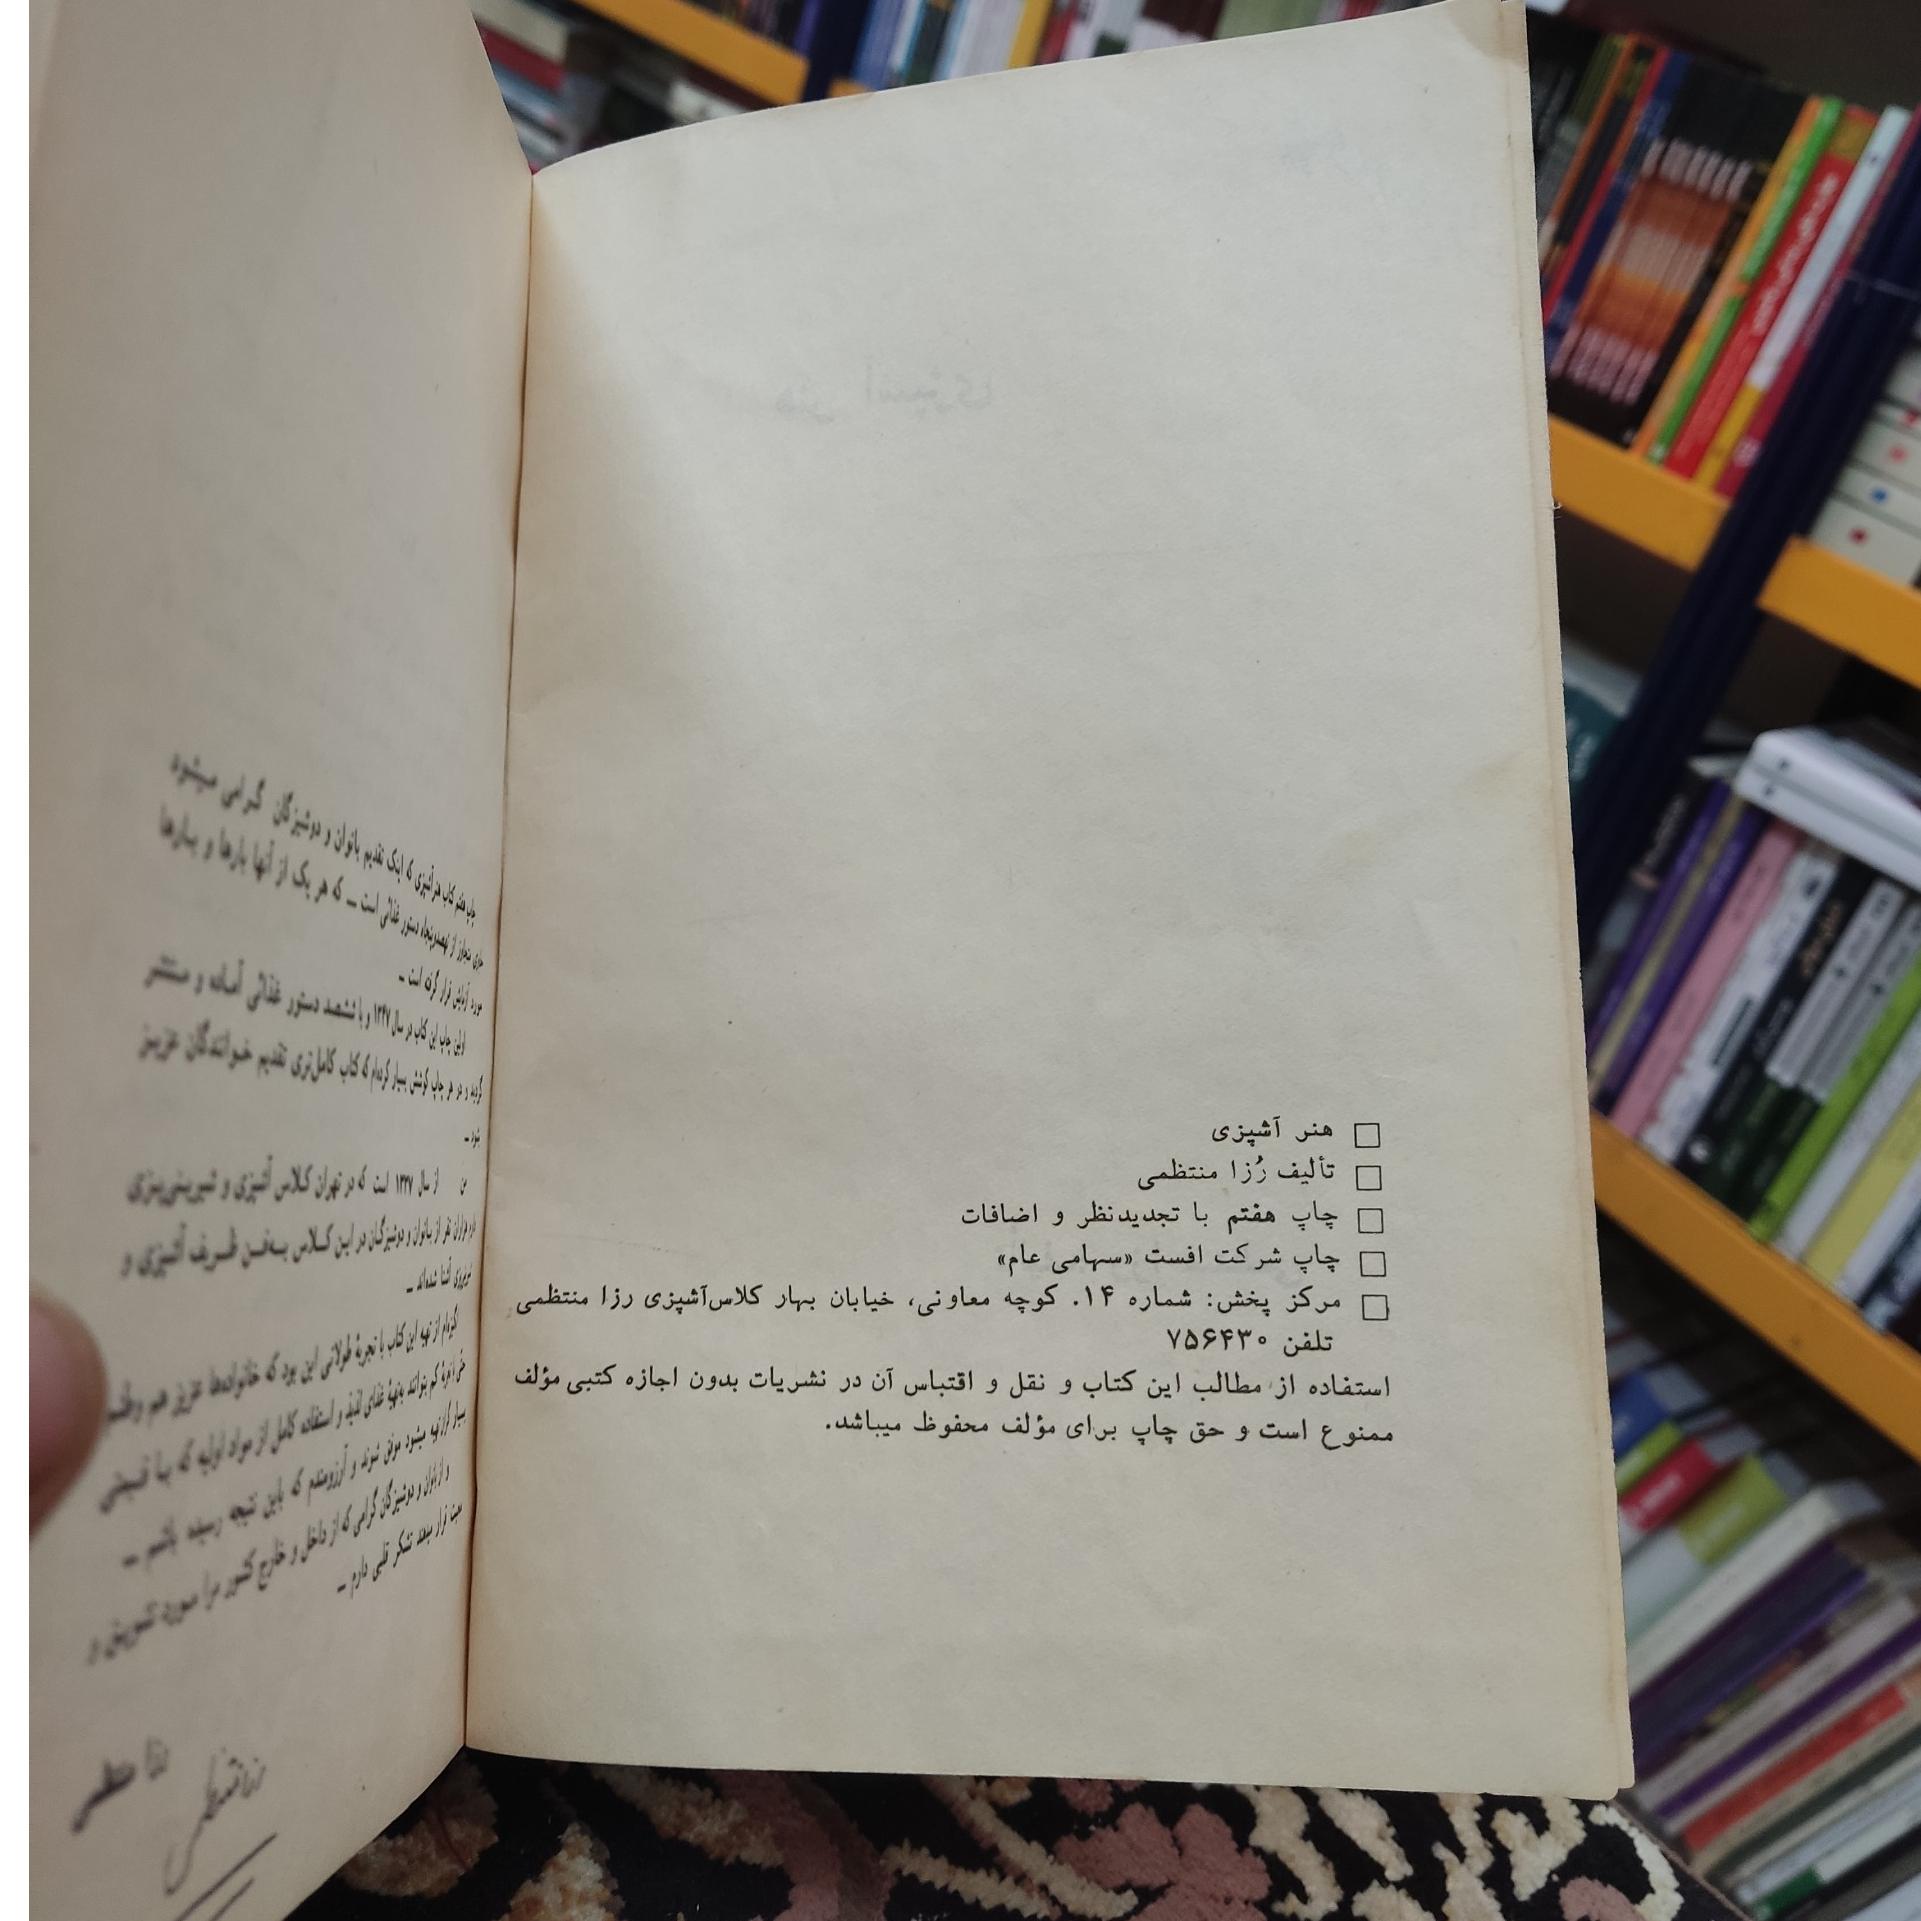 هنر آشپزی
تألیف رُزا منتظمی
چاپ هفتم با تجدیدنظر و اضافات
چاپ شرکت افست «سهامی عام»
مرکز پخش: شماره ۱۴. کوچه معاونی، خیابان بهار کلاس‌آشپزی رزا منتظمی
تلفن ۷۵۶۴۳۰
استفاده از مطالب این کتاب و نقل و اقتباس آن در نشریات بدون اجازه کتبی مؤلف
ممنوع است و حق چاپ برای مؤلف محفوظ میباشد.
چاپ هفتم کتاب هنرآشپزی که اینک تقدیم بانوان و دوشیزگان گرامی میشود
حاوی متجاوز از نهصدوپنجاه دستور غذائی است ــ که هر یک از آنها بارها و بارها
مورد آزمایش قرار گرفته است ــ
اولین چاپ این کتاب در سال ۱۳۴۷ و با ششصد دستور غذائی آماده و منتشر
گردید و در هر چاپ کوشش بسیار کرده‌ام که کتاب کامل‌تری تقدیم خوانندگان عزیز
شود ــ
من از سال ۱۳۳۷ است که در تهران کلاس آشپزی و شیرینی‌پزی
دارم هزاران نفر از بانوان و دوشیزگان در این کلاس به‌فن ظریف آشپزی و
شیرینی‌پزی آشنا شده‌اند ــ
انگیزه‌ام از تهیه این کتاب با تجربهٔ طولانی این بود که خانواده‌ها عزیز هم وطنم
کم بتوانند به‌تهیهٔ غذای لذیذ و استفاده کامل از مواد اولیه که با قیمتی
بسیار گران تهیه میشود موفق شوند و آرزومندم که باین نتیجه رسیده باشم ــ
و از بانوان و دوشیزگان گرامی که از داخل و خارج کشور مرا مورد تشویق و
محبت قرار میدهند تشکر قلبی دارم ــ
رزا منتظمی